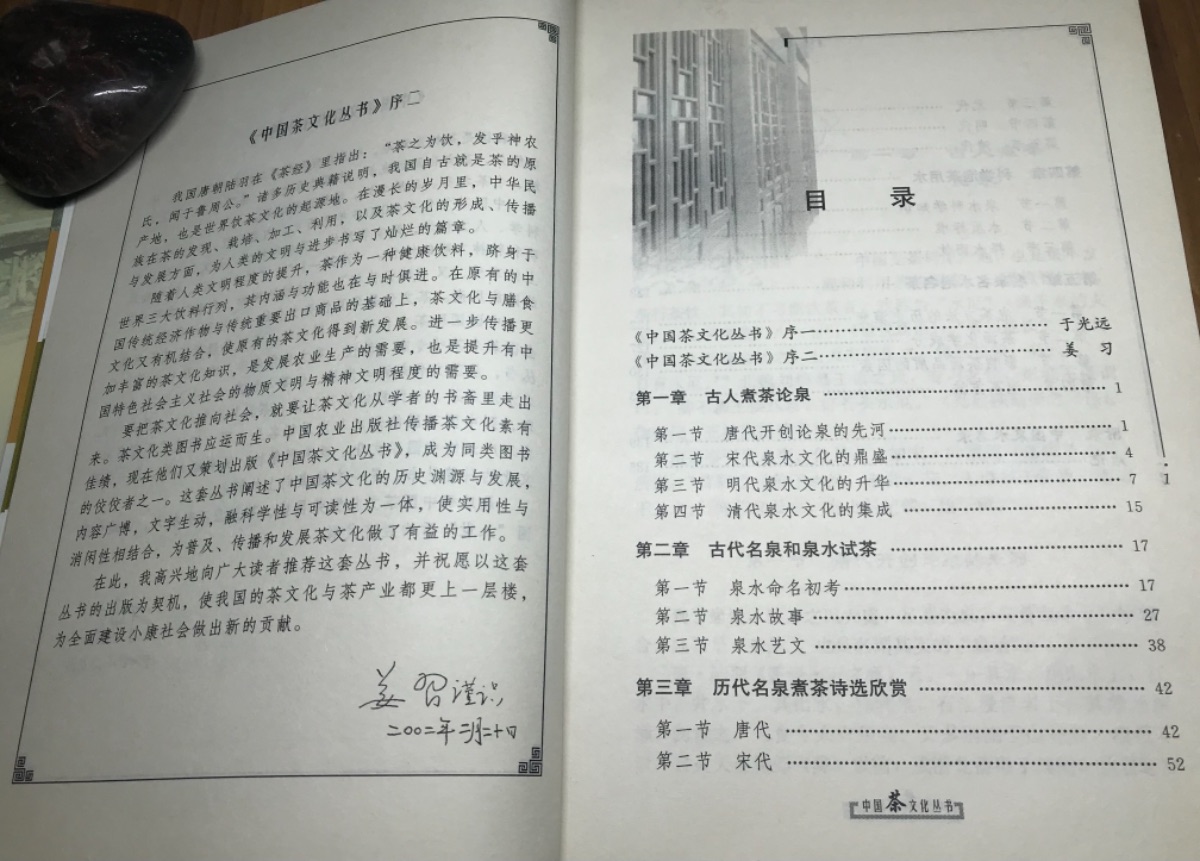 《中国茶文化丛书》序二
我国唐朝陆羽在《茶经》里指出：“茶之为饮，发乎神农
氏，闻于鲁周公。”诸多历史典籍说明，我国自古就是茶的原
产地，也是世界饮茶文化的起源地。在漫长的岁月里，中华民
族在茶的发现、栽培、加工、利用，以及茶文化的形成、传播
与发展方面，为人类的文明与进步书写了灿烂的篇章。
随着人类文明程度的提升，茶作为一种健康饮料，跻身于
世界三大饮料行列，其内涵与功能也在与时俱进。在原有的中
国传统经济作物与传统重要出口商品的基础上，茶文化与膳食
文化又有机结合，使原有的茶文化得到新发展。进一步传播更
加丰富的茶文化知识，是发展农业生产的需要，也是提升有中
国特色社会主义社会的物质文明与精神文明程度的需要。
要把茶文化推向社会，就要让茶文化从学者的书斋里走出
来。茶文化类图书应运而生。中国农业出版社传播茶文化素有
佳绩，现在他们又策划出版《中国茶文化丛书》，成为同类图书
的佼佼者之一。这套丛书阐述了中国茶文化的历史渊源与发展，
内容广博，文字生动，融科学性与可读性为一体，使实用性与
消闲性相结合，为普及、传播和发展茶文化做了有益的工作。
在此，我高兴地向广大读者推荐这套丛书，并祝愿以这套
丛书的出版为契机，使我国的茶文化与茶产业都更上一层楼，
为全面建设小康社会做出新的贡献。
姜习谨识
二〇〇二年二月二十四
目 录
《中国茶文化丛书》序一 于光远
《中国茶文化丛书》序二 姜 习
第一章 古人煮茶论泉 1
第一节 唐代开创论泉的先河 1
第二节 宋代泉水文化的鼎盛 4
第三节 明代泉水文化的升华 7
1
第四节 清代泉水文化的集成 15
第二章 古代名泉和泉水试茶 17
第一节 泉水命名初考 17
第二节 泉水故事 27
第三节 泉水艺文 38
第三章 历代名泉煮茶诗选欣赏 42
第一节 唐代 42
第二节 宋代 52
中国茶文化丛书